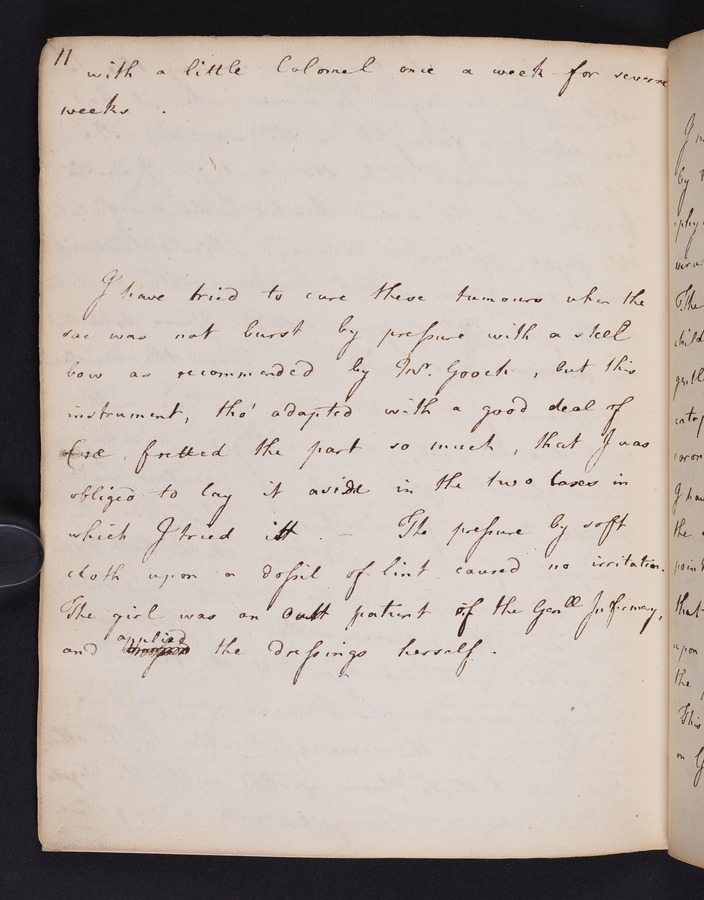 11
with a little Calomel once a week for several
weeks .
I have tried to cure these tumours when the
sac was not burst by pressure with a steel
bow as recommended by Mr. Gooch , but this
instrument, tho' adapted with a good deal of
Care , fretted the part so much , that I was
obliged to lay it aside in the two cases in
which I tried it . – The pressure by soft
cloth upon a dossil of lint caused no irritation.
The girl was an out patient of the Genll Infirmary,
and applied the dressings herself .